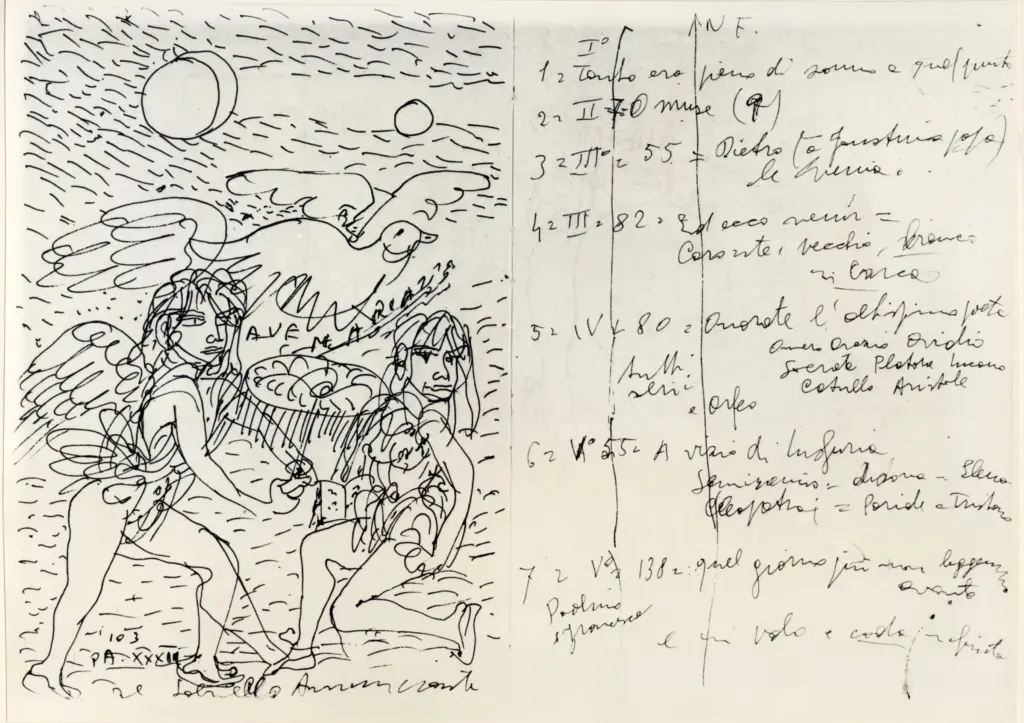 AVE
AVE MARIA
103
PA. XXXII
Gabriello Annunciante
INF.
I°
1= Tant'ero pieno di sonno a quel punto
2= II=7=O muse (9)
3= III°= 55 = Dietro (a
4= III= 82= Ed ecco venir =
Caronte, vecchio, bianco
in barca
5= IV= 80 = Onorate l'altissimo poeta
Omero Orazio Ovidio
Socrate Platone Lucano
Catullo Aristotele
tutti
seri
e Orfeo
6= V°=55= A vizio di lussuria
Semiramis = didone = Elena
Cleopatra = Paride e Tristano
7= V°= 138= quel giorno più non leggemmo
avante
Paolino
e francesca
e